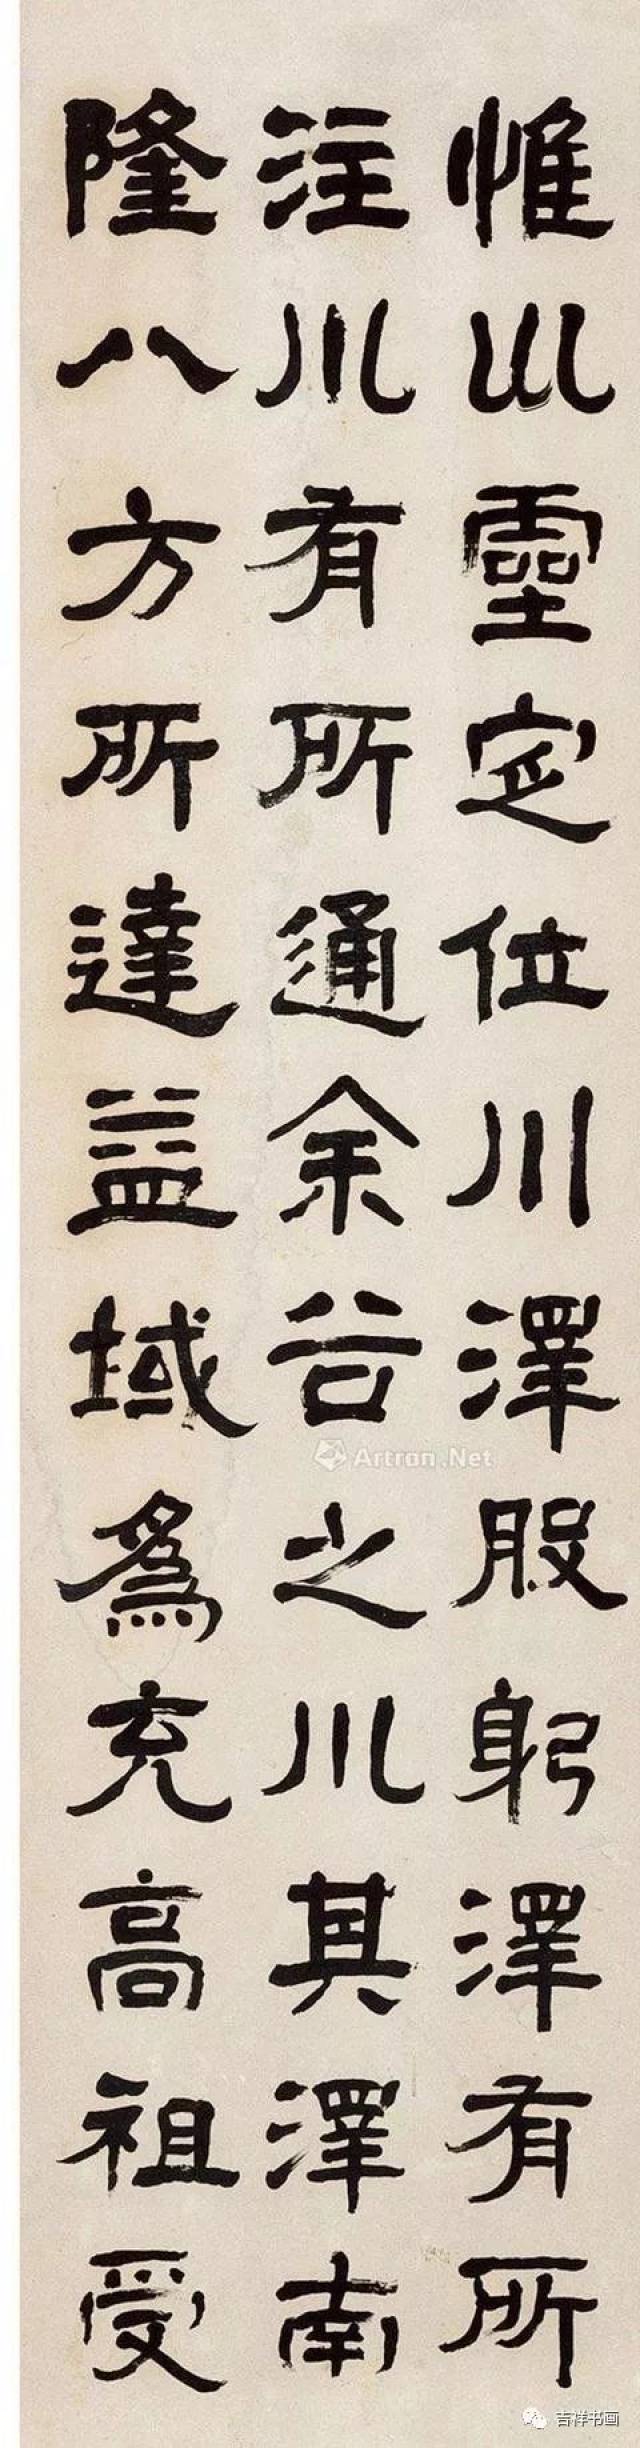 惟巛靈定位川澤股躬澤有所
注川有所通余谷之川其澤南
隆八方所達益域為充高祖受
Artron.Net
吉祥书画